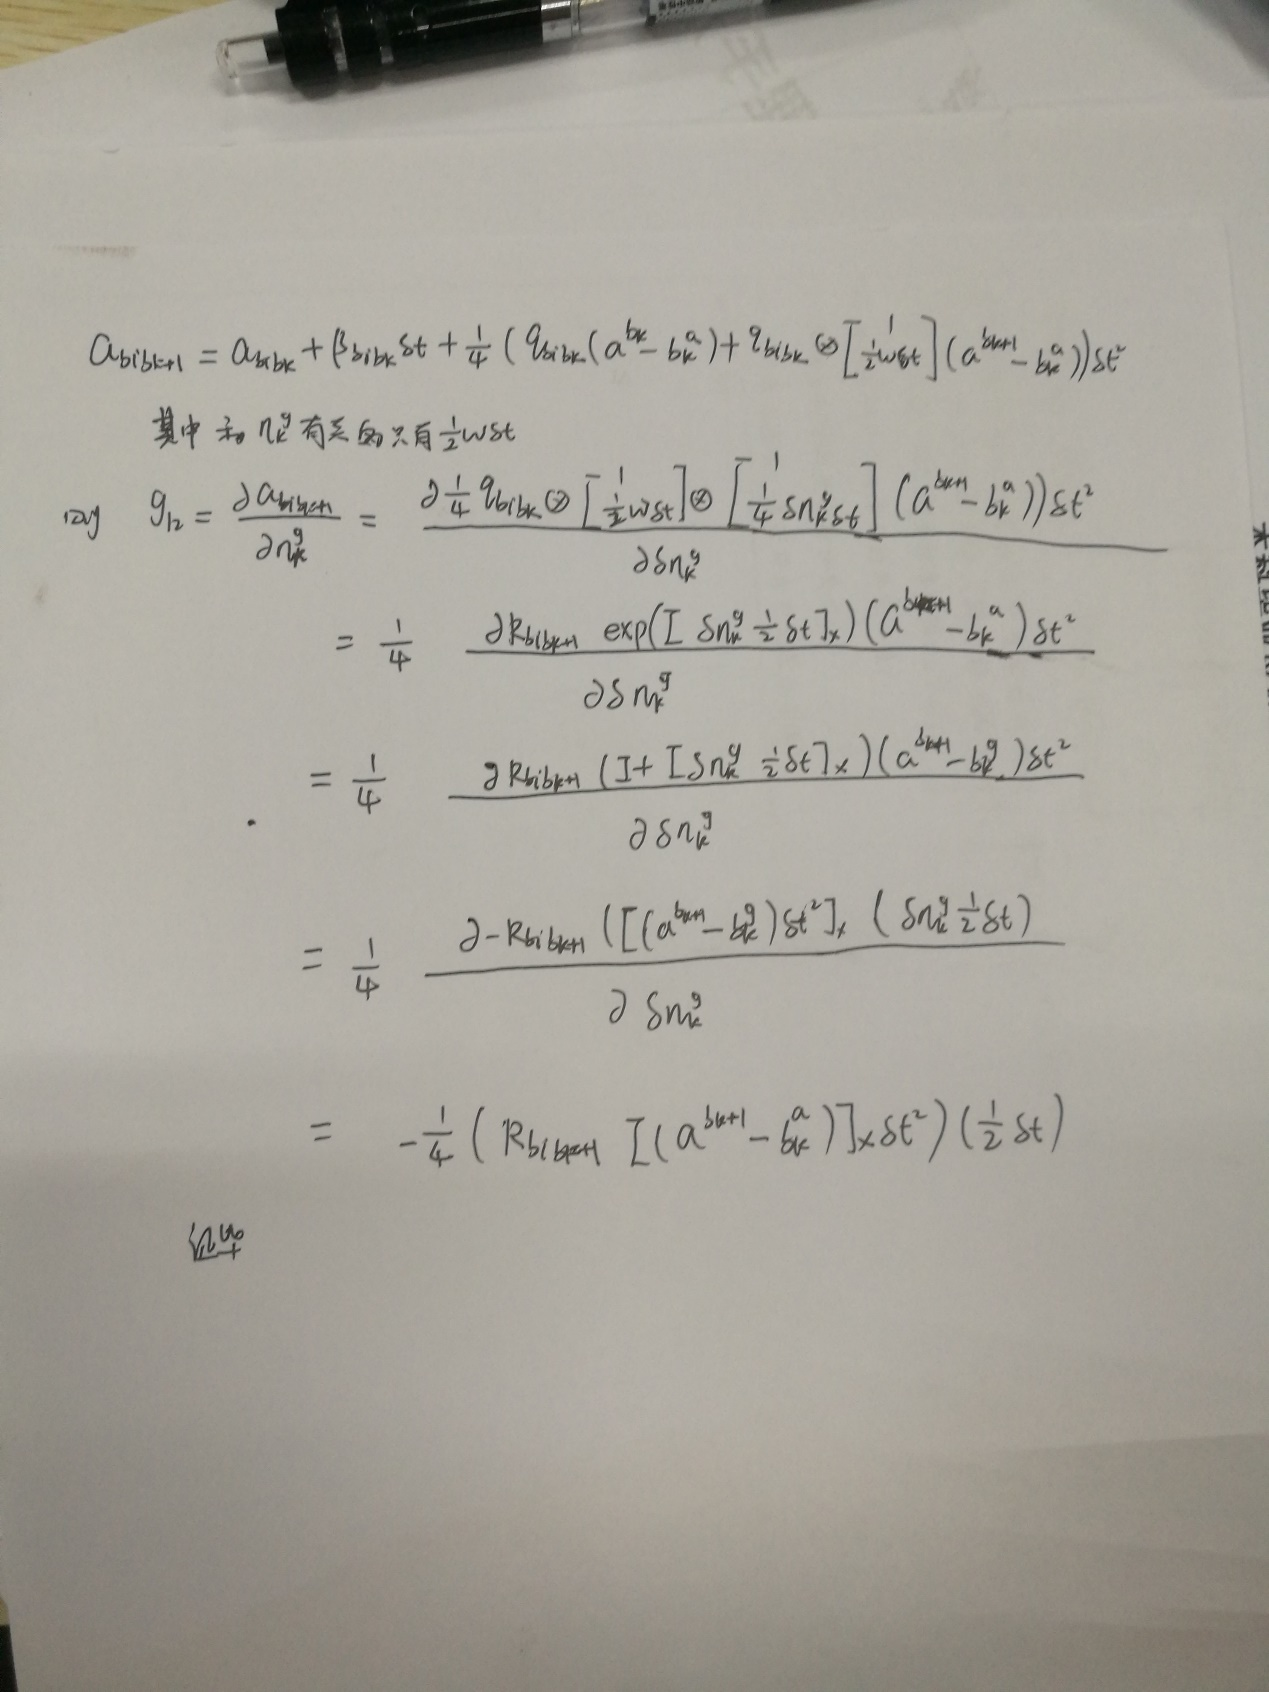 a_{b_i b_{k+1}} = a_{b_i b_k} + β_{b_i b_k} δt + 1/4 ( q_{b_i b_k} (a^{b_k} - b_k^a) + q_{b_i b_k} ⊗ [1; 1/2 ωδt] (a^{b_{k+1}} - b_k^a)) δt²
其中和 n_k^g 有关的只有 1/2 ωδt
则 g_{12} = ∂a_{b_i b_{k+1}} / ∂n_k^g = ∂ 1/4 q_{b_i b_k} ⊗ [1; 1/2 ωδt] ⊗ [1; 1/4 δn_k^g δt] (a^{b_{k+1}} - b_k^a)) δt² / ∂δn_k^g
= 1/4 ∂R_{b_i b_{k+1}} exp([δn_k^g 1/2 δt]_×) (a^{b_{k+1}} - b_k^a) δt² / ∂δn_k^g
= 1/4 ∂R_{b_i b_{k+1}} (I + [δn_k^g 1/2 δt]_×) (a^{b_{k+1}} - b_k^g) δt² / ∂δn_k^g
= 1/4 ∂ - R_{b_i b_{k+1}} ([(a^{b_{k+1}} - b_k^g) δt²]_× (δn_k^g 1/2 δt) / ∂δn_k^g
= - 1/4 ( R_{b_i b_{k+1}} [(a^{b_{k+1}} - b_k^a)]_× δt²) (1/2 δt)
证毕